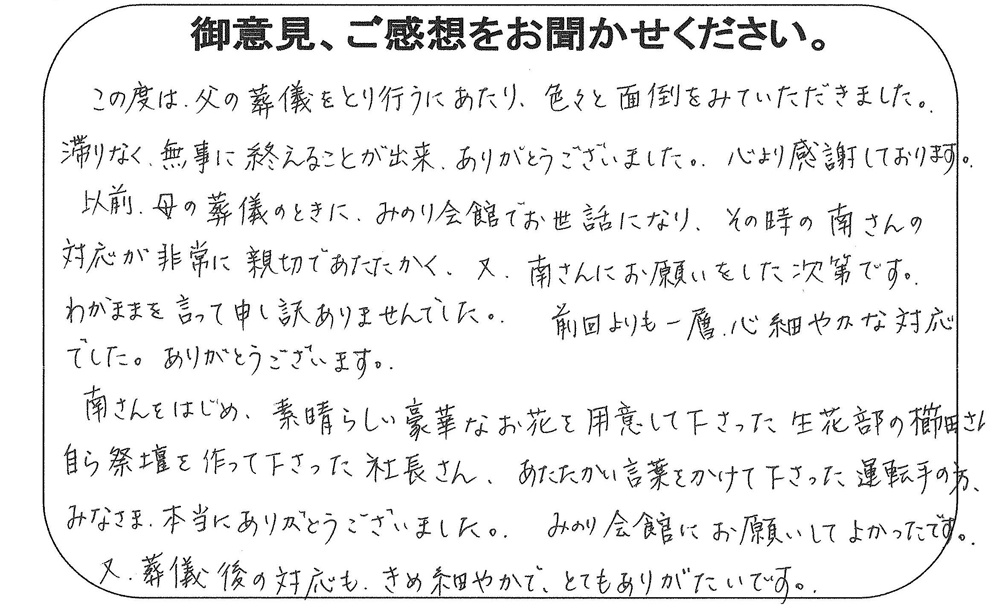 御意見、ご感想をお聞かせください。
この度は、父の葬儀をとり行うにあたり、色々と面倒をみていただきました。
滞りなく、無事に終えることが出来、ありがとうございました。心より感謝しております。
以前、母の葬儀のときに、みのり会館でお世話になり、その時の南さんの
対応が非常に親切であたたかく、又、南さんにお願いをした次第です。
わがままを言って申し訳ありませんでした。 前回よりも一層、心細やかな対応
でした。ありがとうございます。
南さんをはじめ、素晴らしい豪華なお花を用意して下さった生花部の櫛田さん
自ら祭壇を作って下さった社長さん、あたたかい言葉をかけて下さった運転手の方、
みなさま、本当にありがとうございました。 みのり会館にお願いしてよかったです。
又、葬儀後の対応も、きめ細やかで、とてもありがたいです。